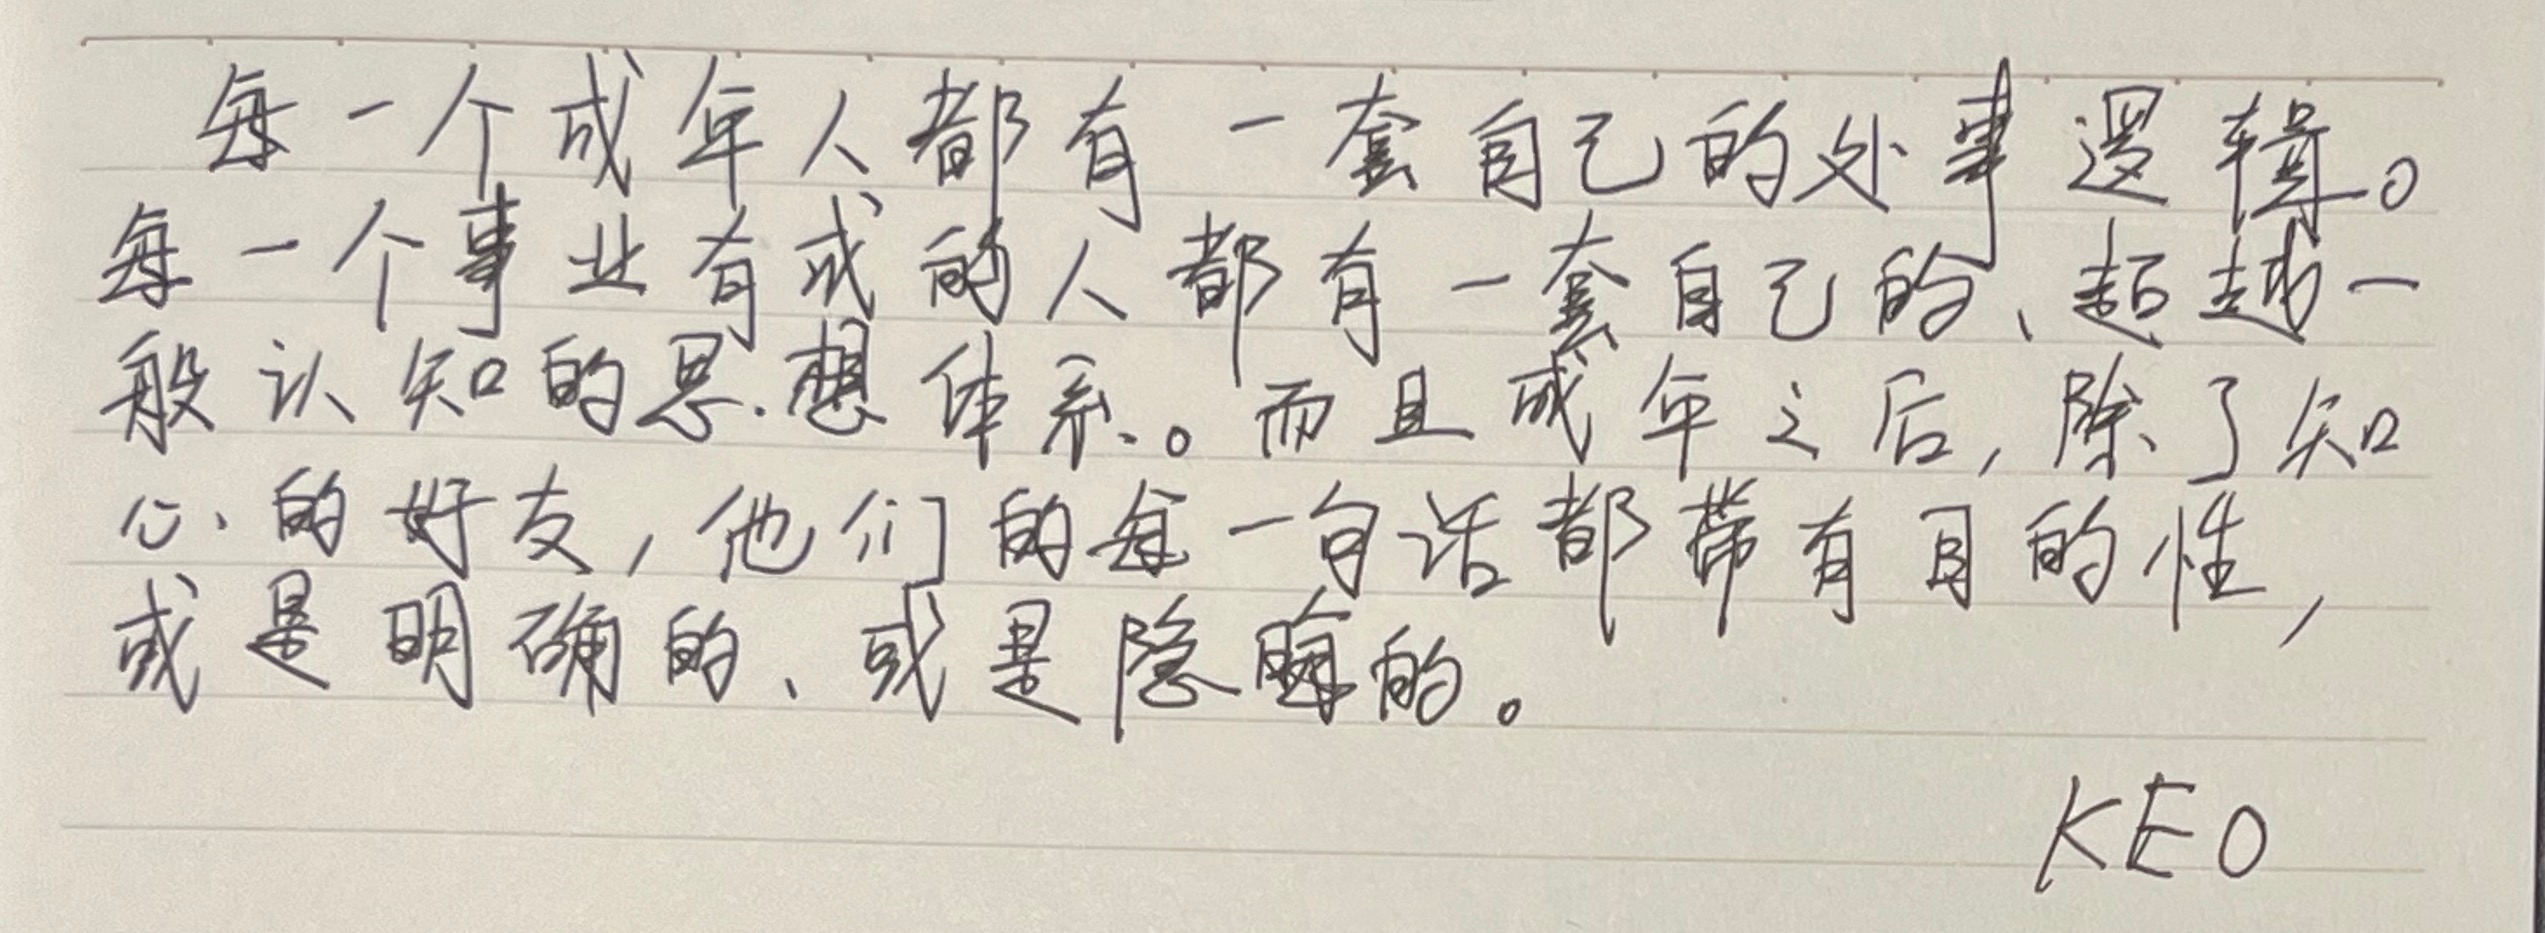 每一个成年人都有一套自己的处事逻辑。
每一个事业有成的人都有一套自己的、超越一
般认知的思想体系。而且成年之后,除了知
心的好友,他们的每一句话都带有目的性,
或是明确的、或是隐晦的。
KEO